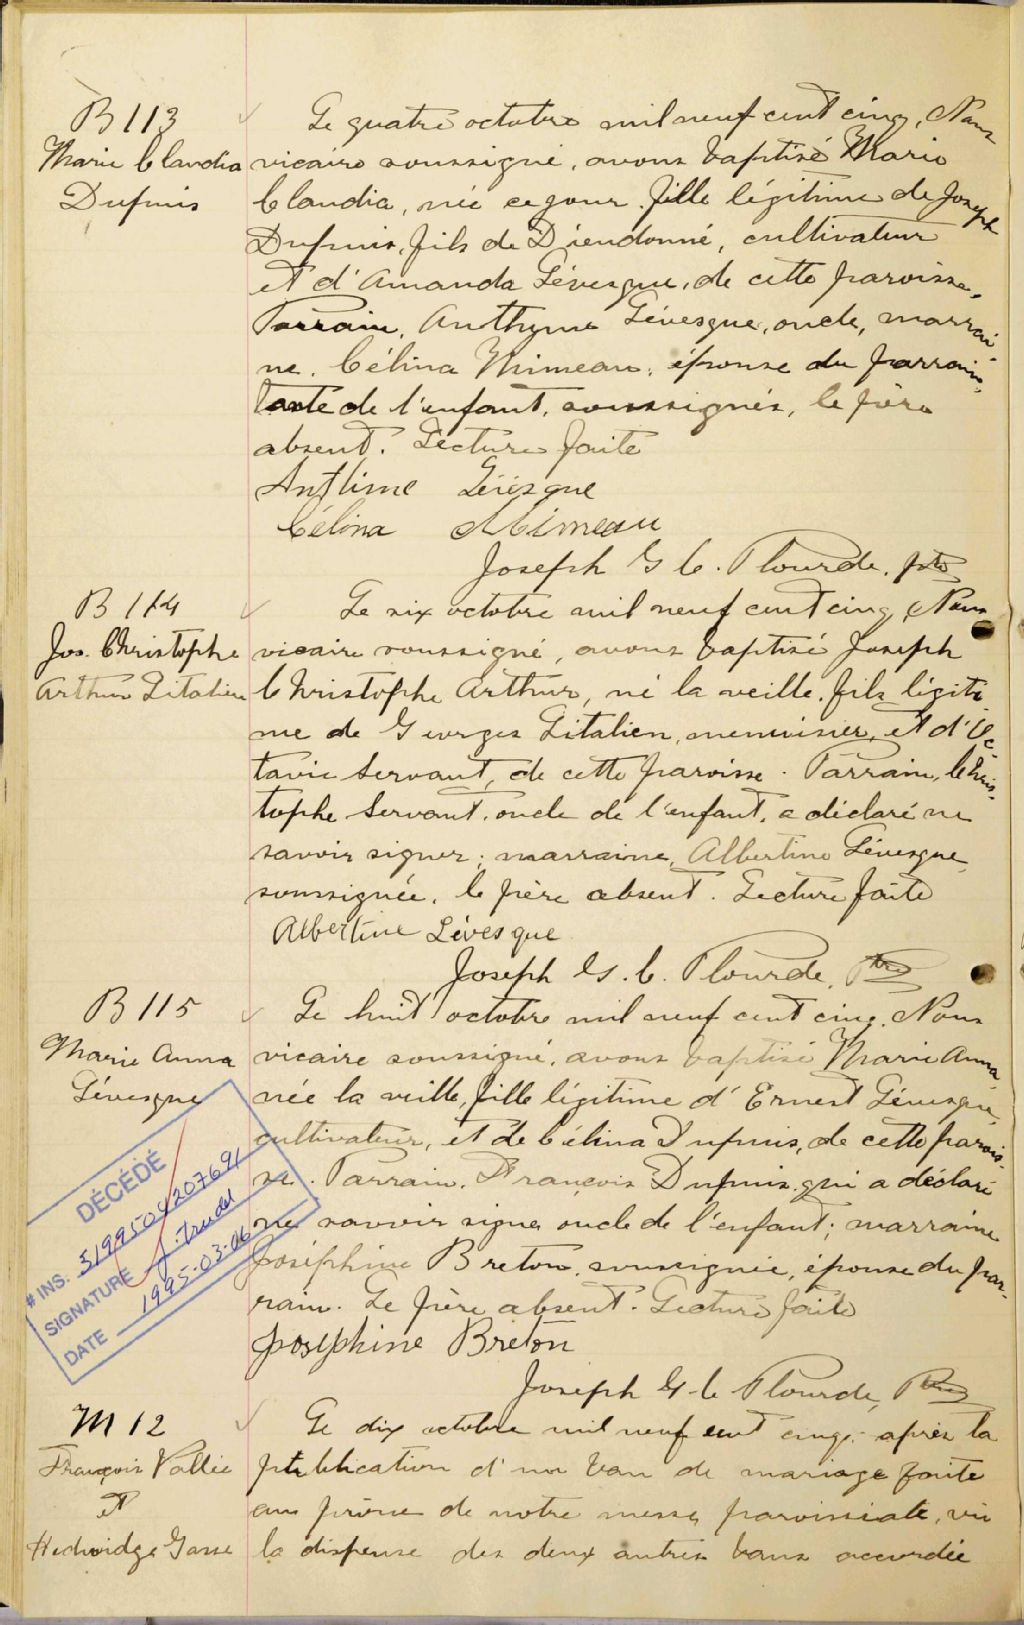 B 113
Marie Claudia
Dupuis
Le quatre octobre mil neuf cent cinq, Nous
vicaire soussigné, avons baptisé Marie
Claudia, née ce jour, fille légitime de Joseph
Dupuis, fils de Dieudonné, cultivateur
et d'Amanda Lévesque, de cette paroisse.
Parrain, Anthyme Lévesque, oncle, marrai-
ne, Célina Mimeau, épouse du parrain,
tante de l'enfant, soussignés, le père
absent. Lecture faite
Anthime Lévèsque
Célina Mimeau
Joseph G. C. Plourde, ptre
B 114
Jos. Christophe
Arthur Litalien
Le six octobre mil neuf cent cinq, Nous
vicaire soussigné, avons baptisé Joseph
Christophe Arthur, né la veille, fils légiti-
me de Georges Litalien, menuisier, et d'Oc-
tavie Servant, de cette paroisse. Parrain, Chris-
tophe Servant, oncle de l'enfant, a déclaré ne
savoir signer; marraine, Albertine Lévesque,
soussignée, le père absent. Lecture faite
Albertine Lévesque
Joseph G. C. Plourde, Ptre
B 115
Marie Anna
Lévesque
Le huit octobre mil neuf cent cinq, Nous
vicaire soussigné, avons baptisé Marie Anna,
née la veille, fille légitime d'Ernest Lévesque,
cultivateur, et de Célina Dupuis, de cette parois-
se. Parrain, François Dupuis, qui a déclaré
ne savoir signer oncle de l'enfant; marraine
Joséphine Breton, soussignée, épouse du par-
rain. Le père absent. Lecture faite
Josephine Breton
Joseph G. C. Plourde, Ptre
DÉCÉDÉ
# INS.
SIGNATURE J. Trudel
DATE 1995-03-06
M 12
François Vallée
et
Hedwidge Gasse
Le dix octobre mil neuf cent cinq, après la
publication d'un ban de mariage faite
au prône de notre messe paroissiale, vu
la dispense des deux autres bans accordée